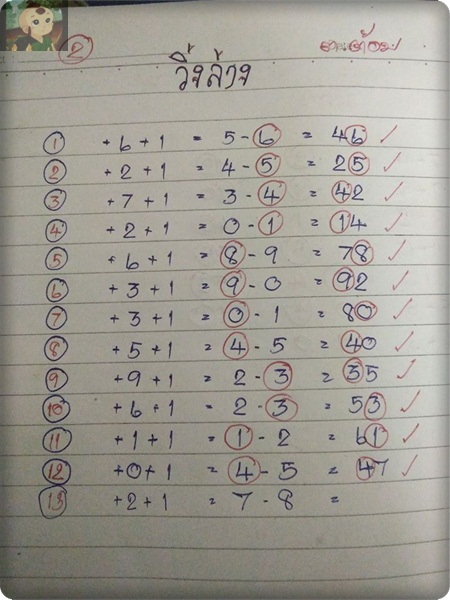 2
วิ่งล่าง
1 +6+1 = 5-6 = 46 ✓
2 +2+1 = 4-5 = 25 ✓
3 +7+1 = 3-4 = 42 ✓
4 +2+1 = 0-1 = 14 ✓
5 +6+1 = 8-9 = 78 ✓
6 +3+1 = 9-0 = 92 ✓
7 +3+1 = 0-1 = 80 ✓
8 +5+1 = 4-5 = 40 ✓
9 +9+1 = 2-3 = 35 ✓
10 +6+1 = 2-3 = 53 ✓
11 +1+1 = 1-2 = 61 ✓
12 +0+1 = 4-5 = 47 ✓
13 +2+1 = 7-8 =